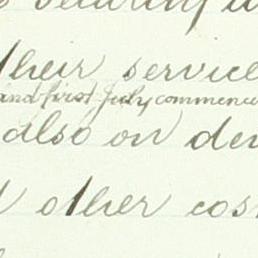 their service
and first July commence
also on de
other cos